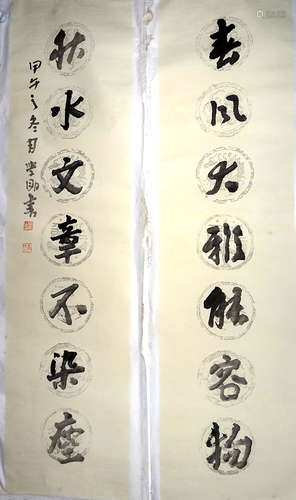 春风大雅能容物
秋水文章不染尘
甲午之冬月学明书